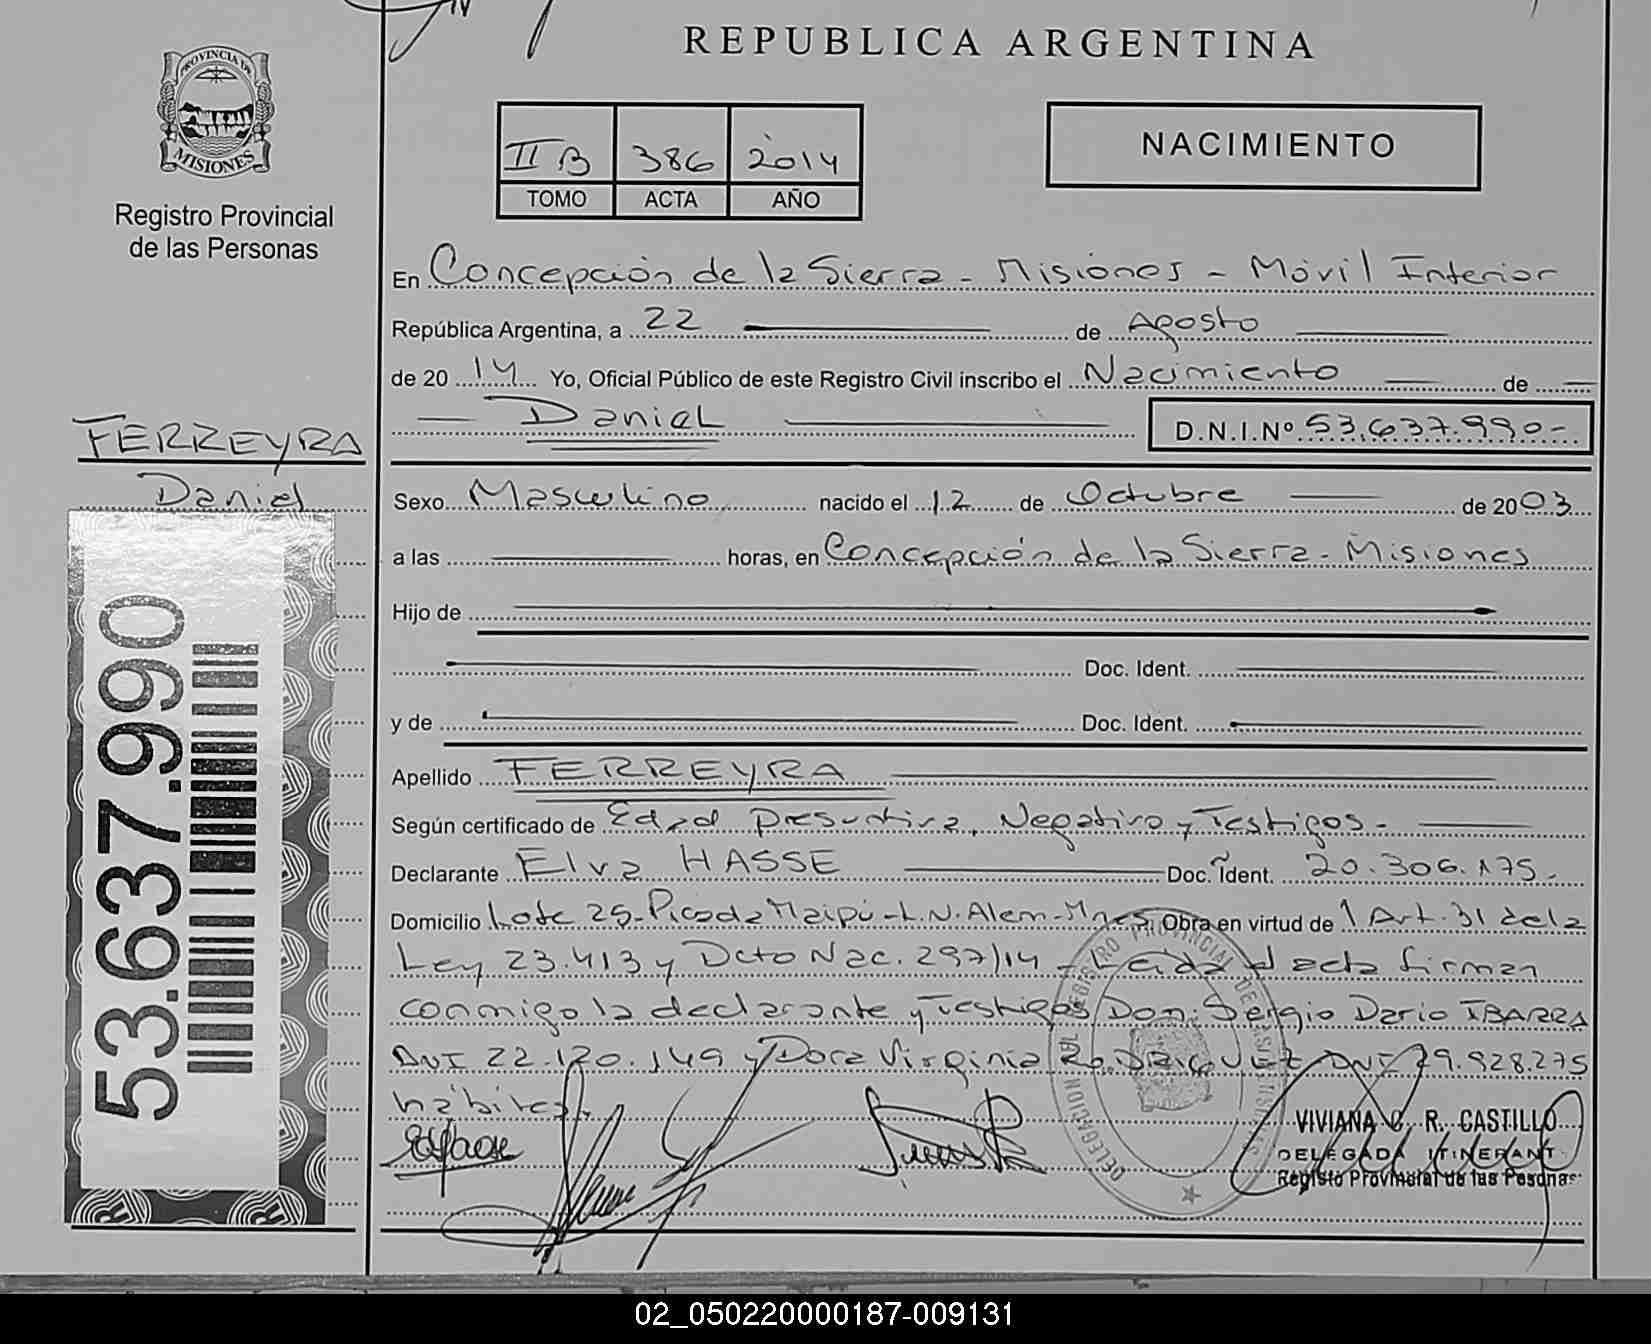 REPUBLICA ARGENTINA
PROVINCIA DE
MISIONES
Registro Provincial
de las Personas
II B 386 2014
TOMO ACTA AÑO
NACIMIENTO
En Concepción de la Sierra - Misiones - Móvil Interior
República Argentina, a 22 de Agosto
de 2014 Yo, Oficial Público de este Registro Civil inscribo el Nacimiento de
Daniel D.N.I.Nº 53.637.990-
FERREYRA
Daniel
53.637.990
Sexo Masculino nacido el 12 de Octubre de 2003
a las horas, en Concepción de la Sierra - Misiones
Hijo de
Doc. Ident.
y de Doc. Ident.
Apellido FERREYRA
Según certificado de Edad Presuntiva, Negativo y Testigos -
Declarante Elva HASSE Doc. Ident. 20.306.175.
Domicilio Lote 25 - Picada Maipú - L.N. Alem - Mnes Obra en virtud de 1 Art. 31 de la
Ley 23.413 y Dcto Nac. 297/14 - Leida el acta firman
conmigo la declarante y Testigos Don: Sergio Dario IBARRA
DNI 22.120.149 y Dora Virginia RODRIGUEZ DNI 29.928.275
hábiles.
VIVIANA C. R. CASTILLO
DELEGADA ITINERANT
Registo Provincial de las Pesonas
02_050220000187-009131